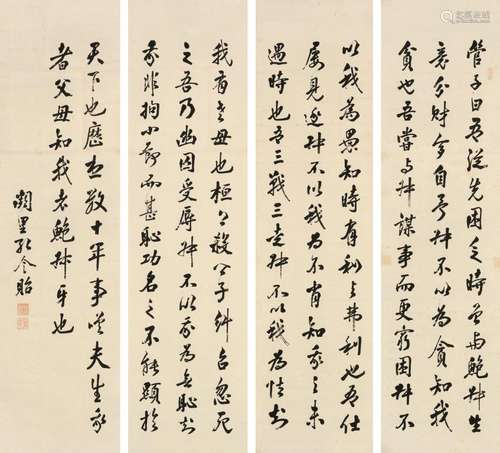 管子曰吾從先困乏時曾與鮑叔生
意分財多自予叔不以為貪知我
貧也吾嘗与叔謀事而更窮困叔不
以我為愚知時有利与弗利也吾仕
屢見逐叔不以我為不肖知我之未
遇時也吾三戰三走叔不以我為怯知
我有老母也桓公殺公子糾召忽死
之吾乃幽囚受辱叔不以我為無恥知
我非拘小節而甚恥功名之不能顯於
天下也歷想數十年事嗟夫生我
者父母知我者鮑叔牙也
闕里孔令貽